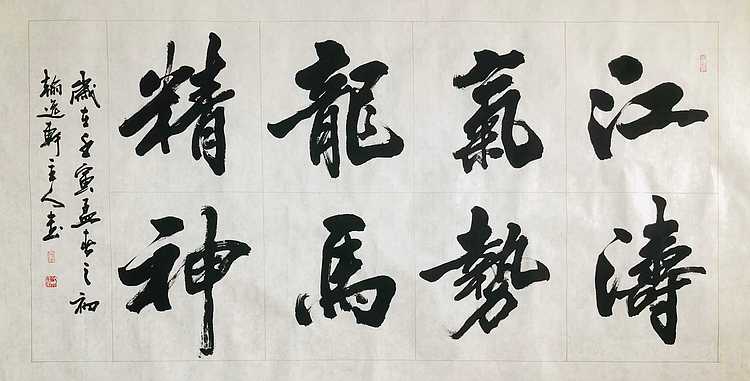 江濤
氣勢
龍馬
精神
歲在壬寅孟春之初
翰逸軒主人書